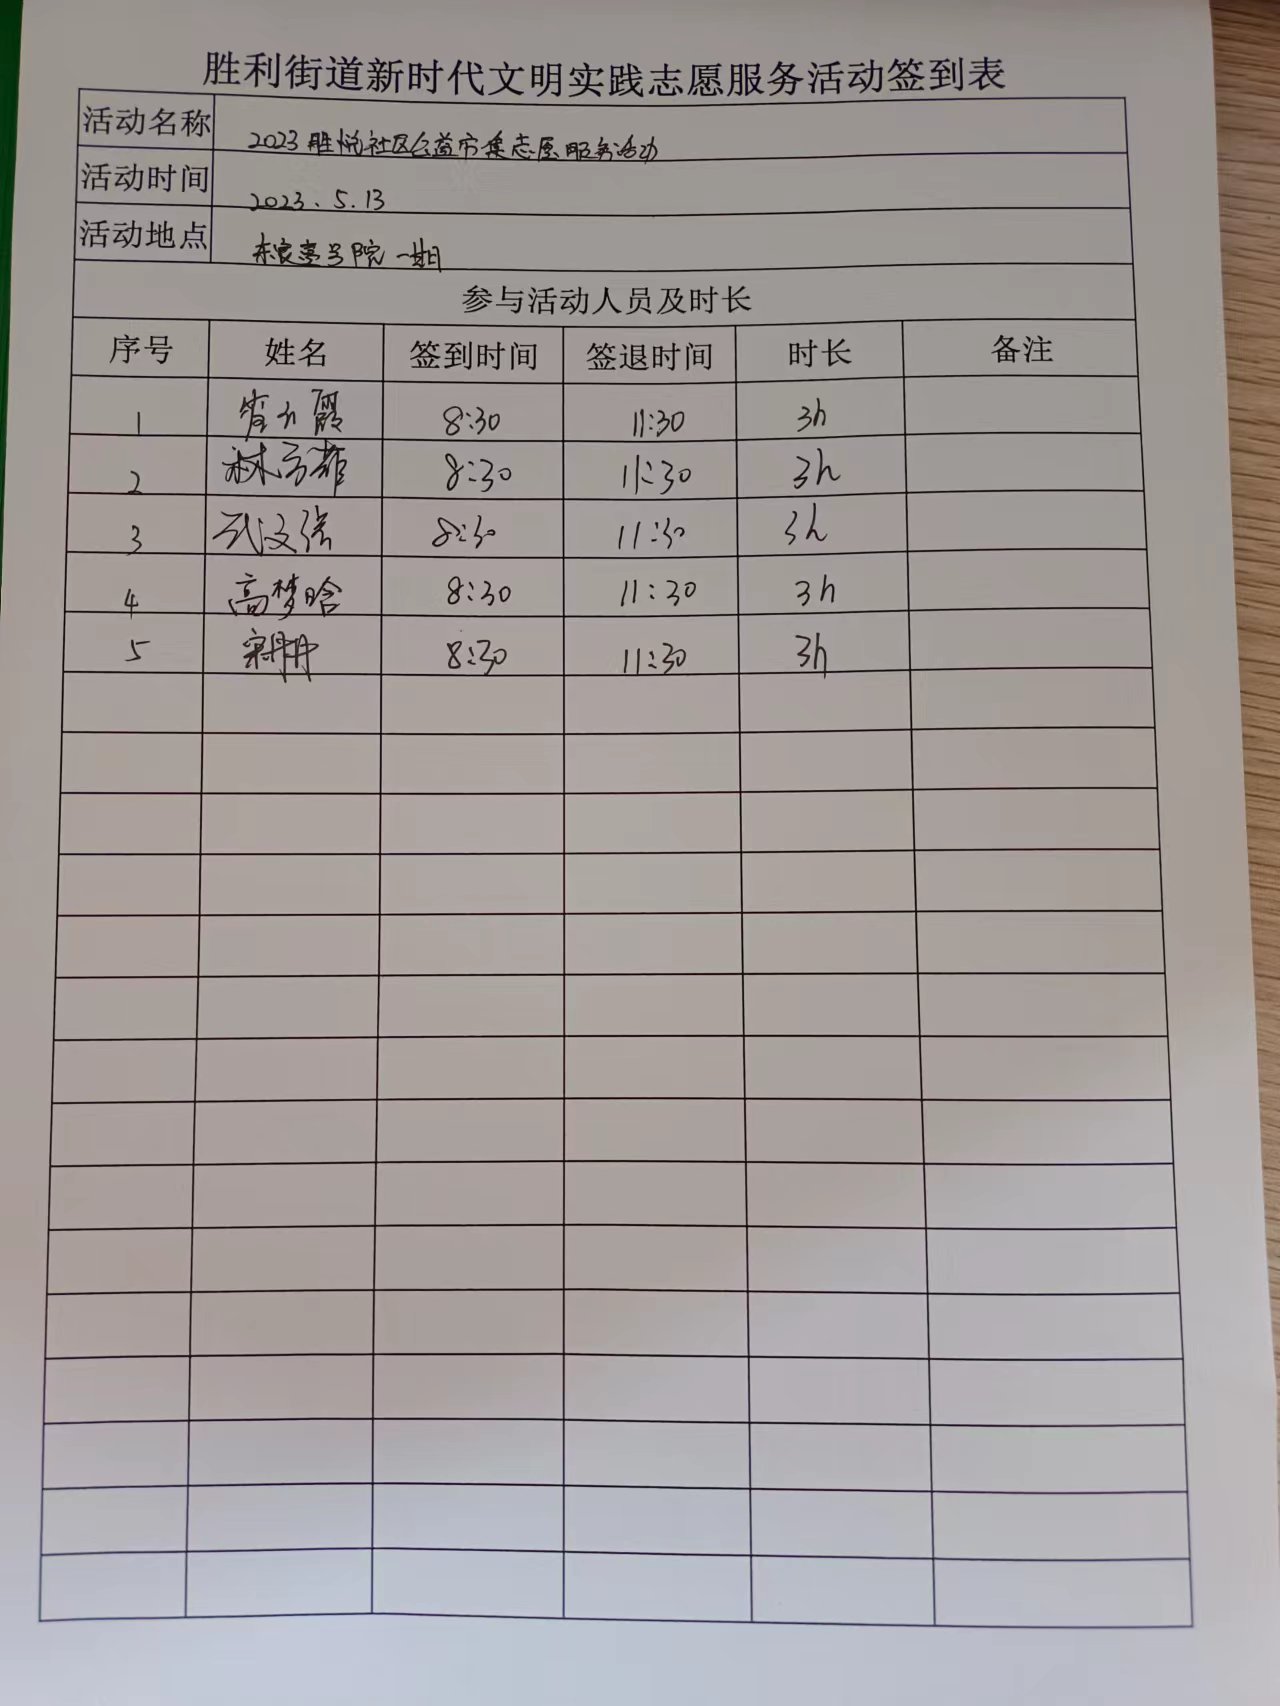 胜利街道新时代文明实践志愿服务活动签到表
活动名称 2023胜悦社区公益市集志愿服务活动
活动时间 2023.5.13
活动地点 院一期
参与活动人员及时长
序号 姓名 签到时间 签退时间 时长 备注
1 8:30 11:30 3h
2 8:30 11:30 3h
3 8:30 11:30 3h
4 高梦晗 8:30 11:30 3h
5 8:30 11:30 3h